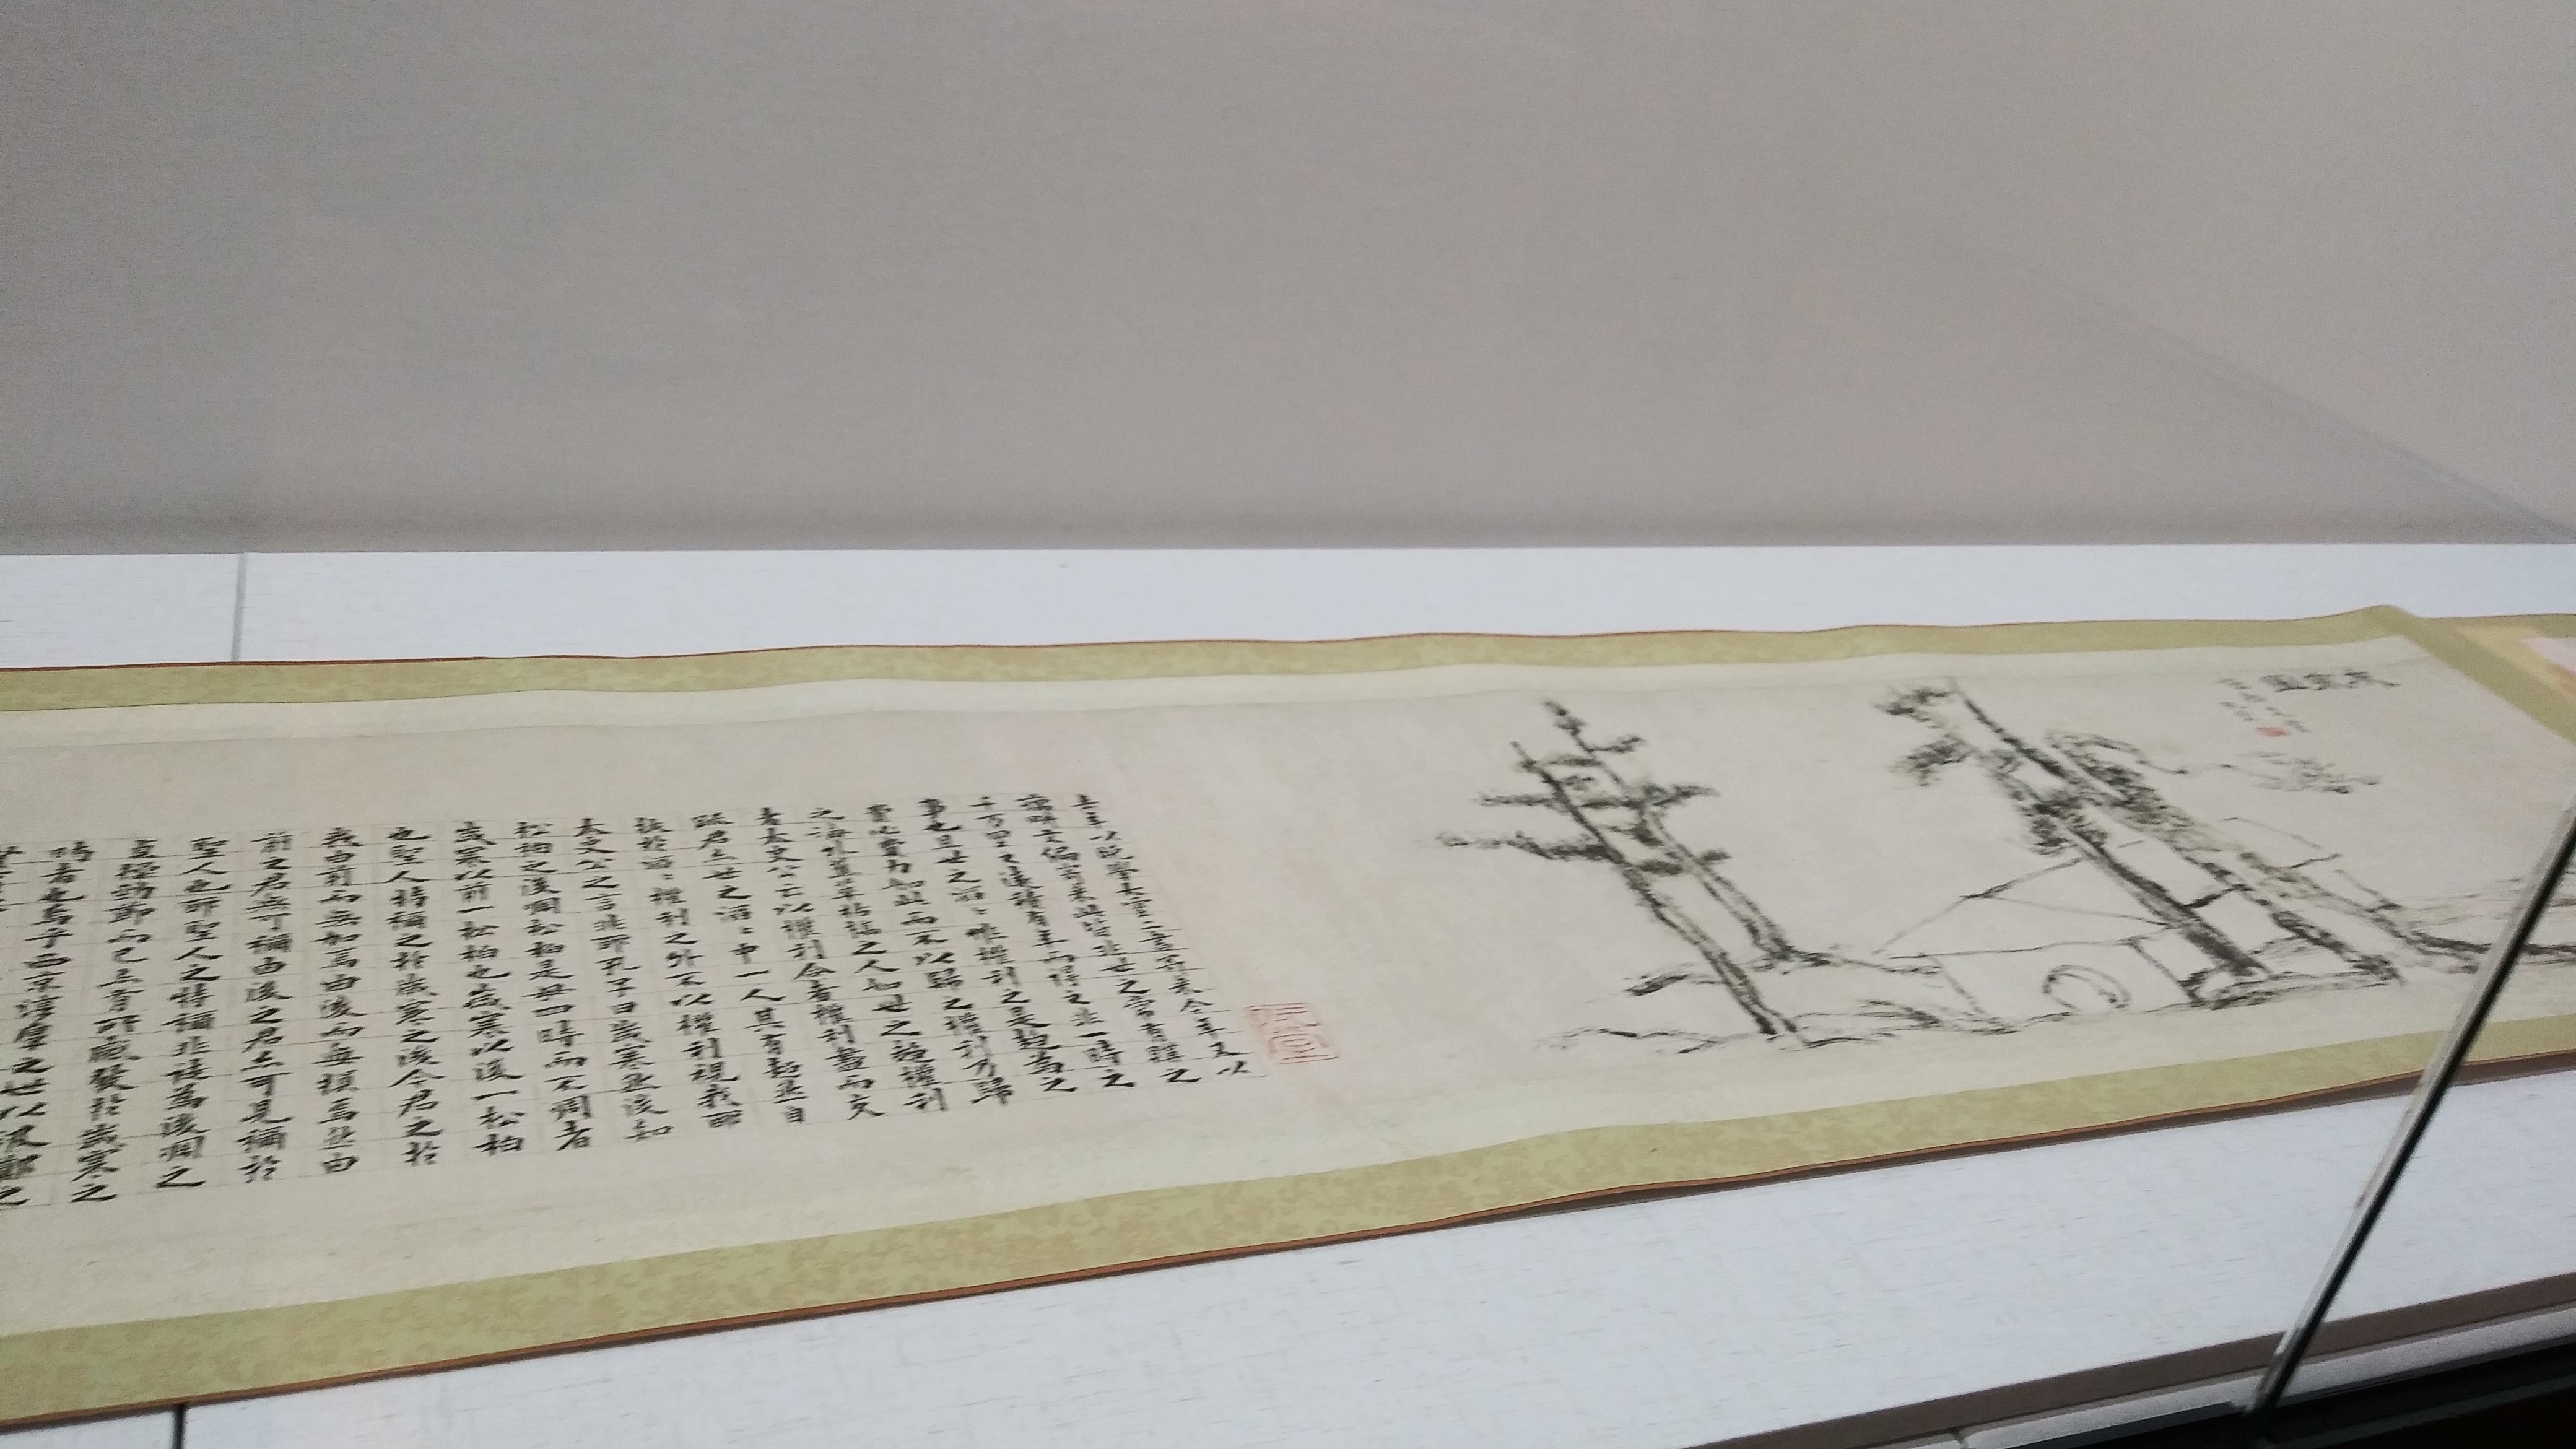 歲寒圖
去年以晚學大雲二書寄來今年又以
藕耕文編寄來此皆非世之常有購之
千万里之遠積有年而得之非一時之
事也且世之滔〻惟權利之是趨為之
費心費力如此而不以歸之權利乃歸
之海外蕉萃枯槁之人如世之趨權利
者太史公云以權利合者權利盡而交
疎君亦世之滔〻中一人其有超然自
拔於滔〻權利之外不以權利視我耶
太史公之言非耶孔子曰歲寒然後知
松柏之後凋松柏是毋四時而不凋者
歲寒以前一松柏也歲寒以後一松柏
也聖人特稱之於歲寒之後今君之於
我由前而無加焉由後而無損焉然由
前之君無可稱由後之君亦可見稱於
聖人也耶聖人之特稱非徒為後凋之
貞操勁節而已亦有所感發於歲寒之
時者也烏乎西京淳厚之世以汲鄭之